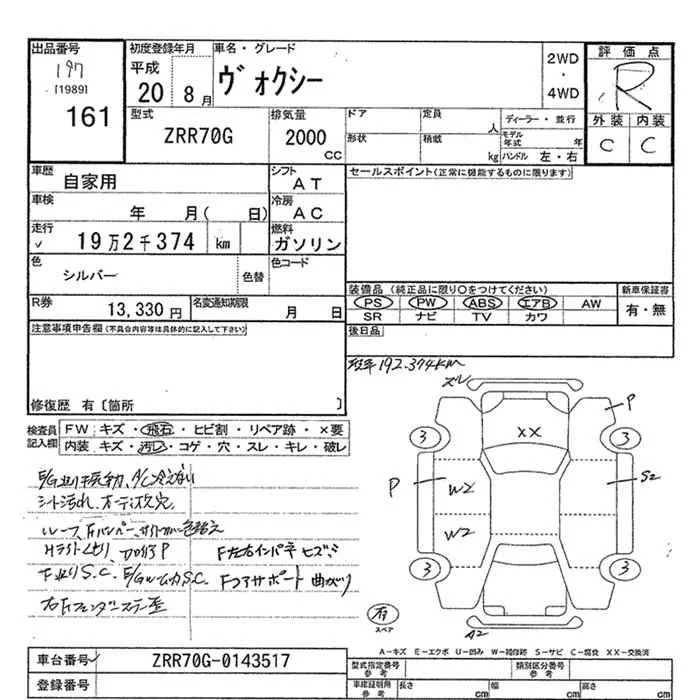 出品番号
197
[1989]
161
初度登録年月
平成
20 8月
車名・グレード
ヴォクシー
2WD
・
4WD
評価点
R
外装 内装
C C
型式
ZRR70G
排気量
2000
CC
ドア
定員
人
ディーラー・並行
形状
積載
kg
モデル年式 年
ハンドル 左・右
車歴
自家用
シフト
AT
車検
年 月( 日)
冷房
AC
走行
19万2千374 km
燃料
ガソリン
色
シルバー
色替
色コード
R券
13,330円
名変通知期限
月 日
セールスポイント(正常に機能するものに限ります)
装備品 (純正品に限り○をつけてください)
新車保証書
PS PW ABS エアB AW
SR ナビ TV カワ
有・無
後日品
注意事項申告欄(不具合内容等は具体的に記入して下さい)
修復歴 有〔箇所 〕
検査員記入欄
FW: キズ・飛石・ヒビ割・リペア跡・×要
内装: キズ・汚れ・コゲ・穴・スレ・キレ・破レ
192,374km
ズレ
P
XX
3 3
P
W2
S2
W2
3 3
有
スペア
A2
シート汚れ、オーディオ欠穴
F左右インパネ ヒズミ
Fコアサポート 曲がり
A-キズ E-エクボ U-凹み W-補修跡 S-サビ C-腐食 XX-交換済
車台番号
ZRR70G-0143517
登録番号
型式指定番号
参考
類別区分番号
参考
車庫証明用
参考
長さ cm
幅 cm
高さ cm